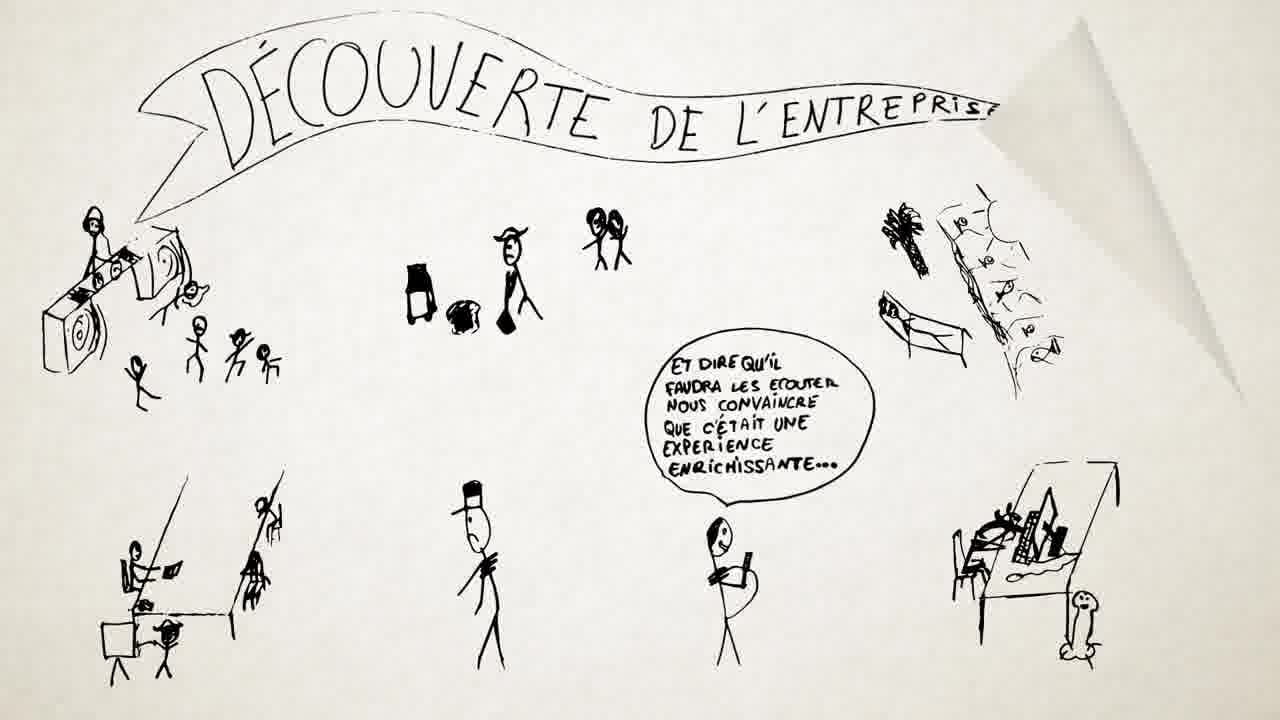 DÉCOUVERTE DE L'ENTREPRISE
ET DIRE QU'iL
FAUDRA LES ECOUTER
NOUS CONVAiNCRE
QUE C'ÉTAiT UNE
EXPERiENCE
ENRiCHiSSANTE...